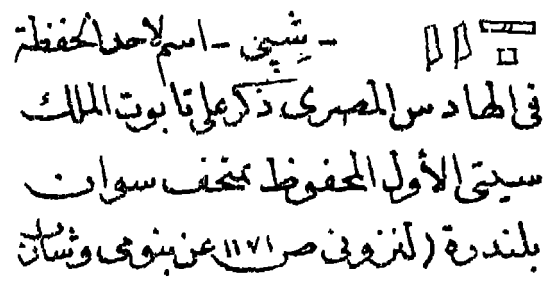 - شِپِي - اسم لأحد الحفظة
في الهادس المصرى ذكر على تابوت الملك
سيتي الأول المحفوظ بمتحف سوان
بلندرة (لنزوني ص ١١٧١ عن بنومي وشارل